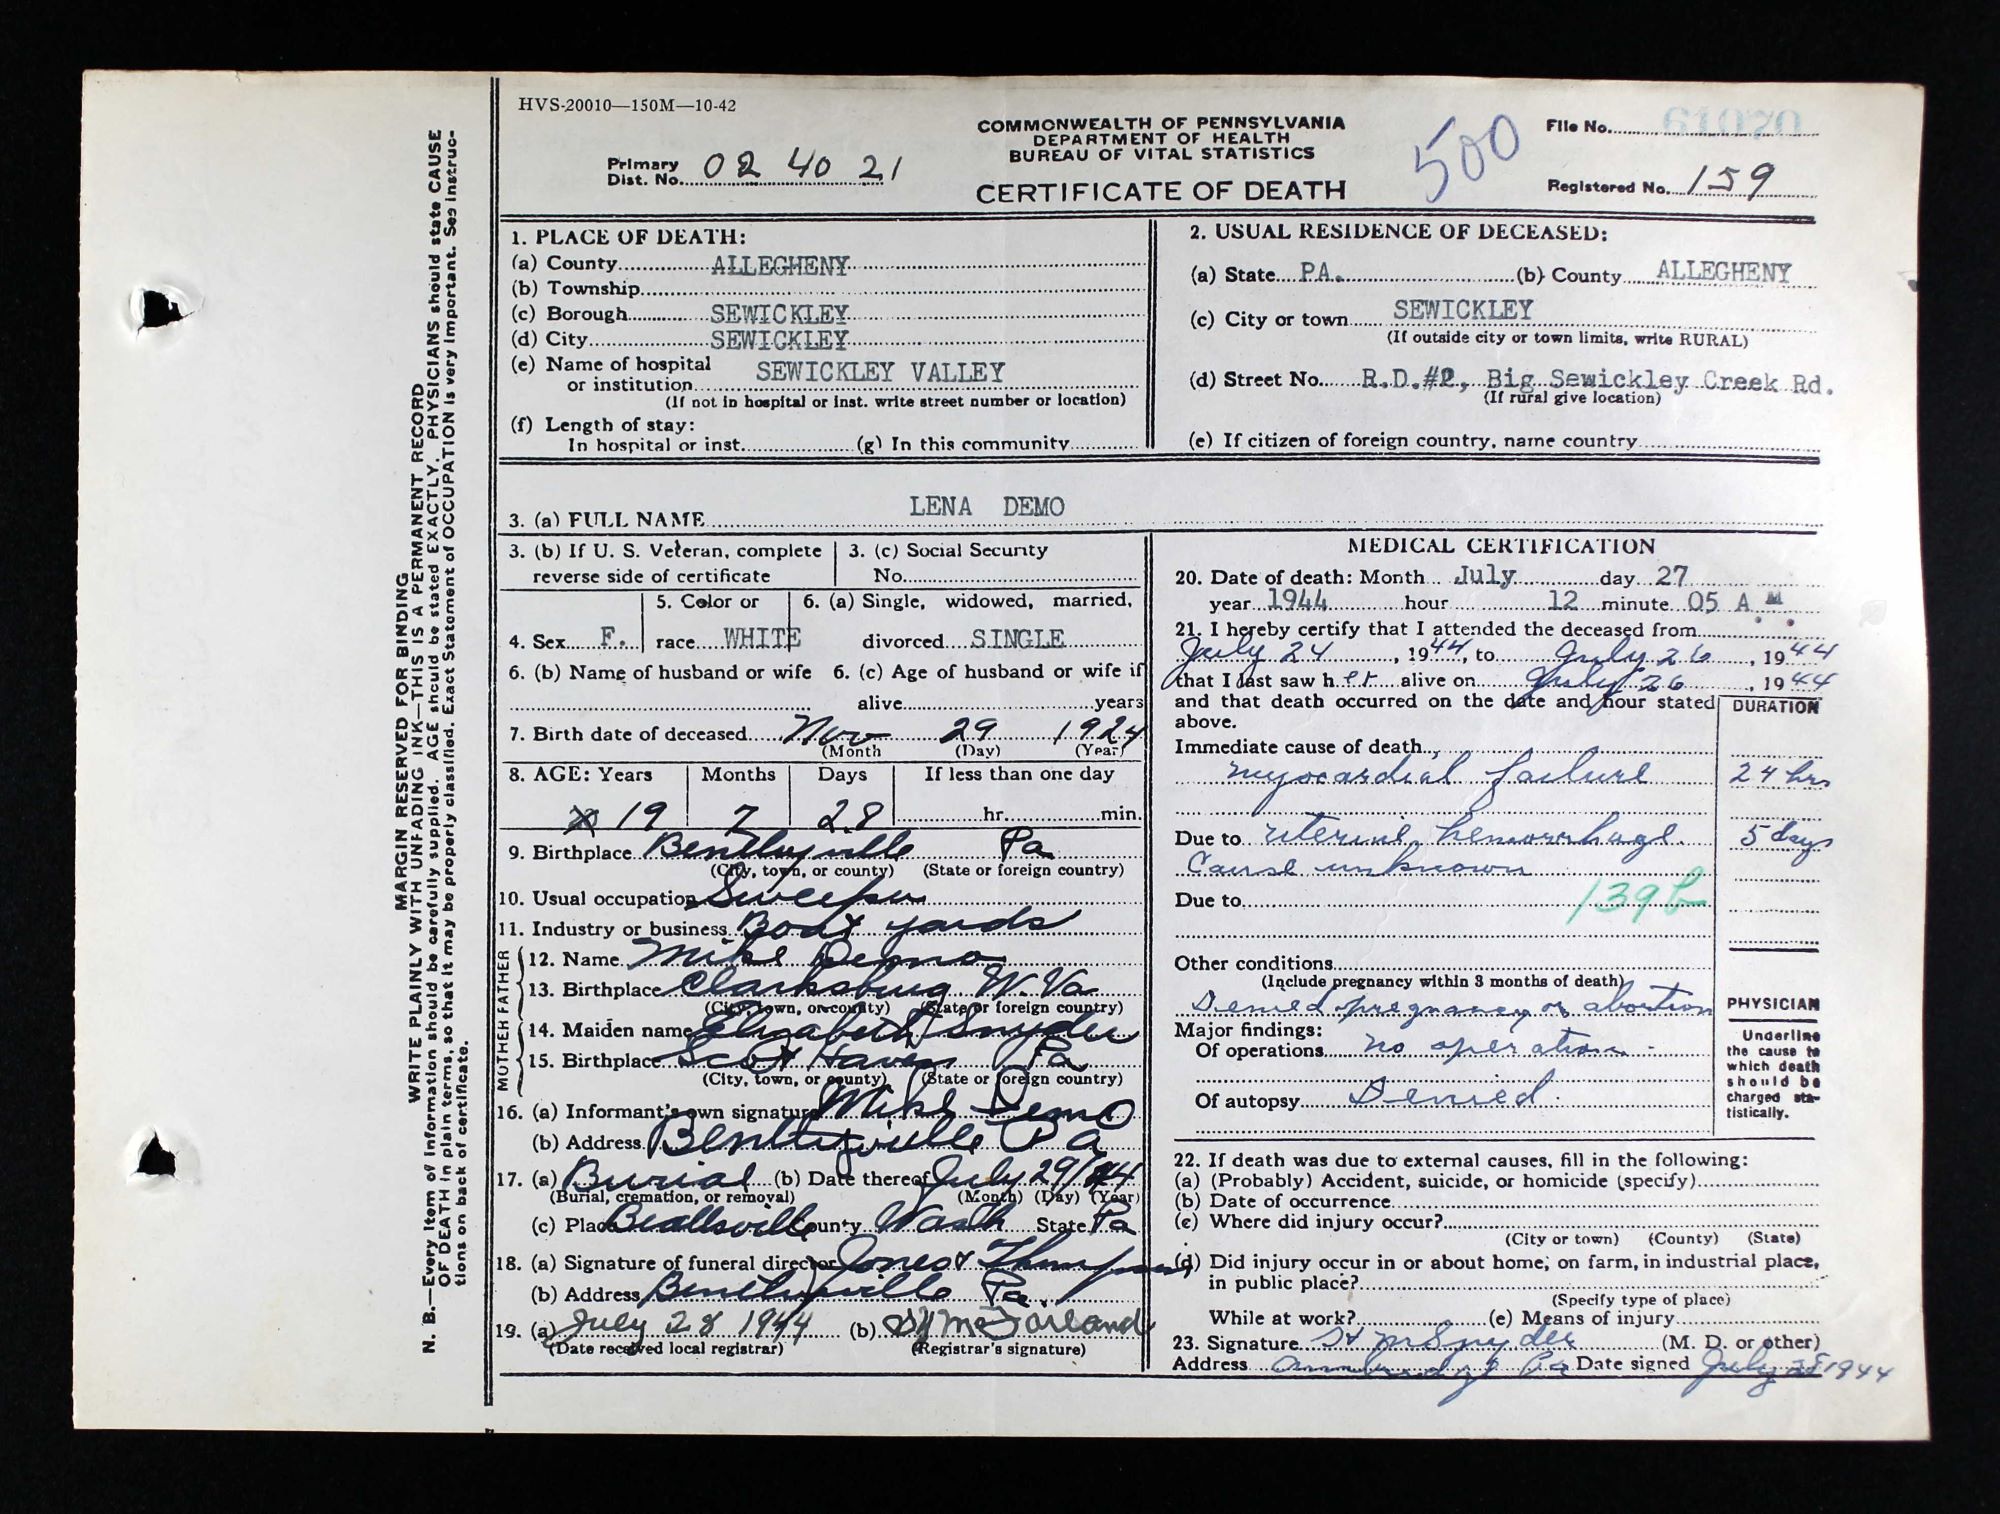 HVS-20010—150M—10-42
COMMONWEALTH OF PENNSYLVANIA
DEPARTMENT OF HEALTH
BUREAU OF VITAL STATISTICS
CERTIFICATE OF DEATH
Primary Dist. No. 02 40 21
500
File No.
Registered No. 159
MARGIN RESERVED FOR BINDING
WRITE PLAINLY WITH UNFADING INK—THIS IS A PERMANENT RECORD
N. B.—Every item of information should be carefully supplied. AGE should be stated EXACTLY. PHYSICIANS should state CAUSE
OF DEATH in plain terms, so that it may be properly classified. Exact Statement of OCCUPATION is very important. See instruc-
tions on back of certificate.
1. PLACE OF DEATH:
(a) County ALLEGHENY
(b) Township
(c) Borough SEWICKLEY
(d) City SEWICKLEY
(e) Name of hospital
or institution SEWICKLEY VALLEY
(If not in hospital or inst. write street number or location)
(f) Length of stay:
In hospital or inst. (g) In this community
2. USUAL RESIDENCE OF DECEASED:
(a) State PA. (b) County ALLEGHENY
(c) City or town SEWICKLEY
(If outside city or town limits, write RURAL)
(d) Street No. R.D.#2, Big Sewickley Creek Rd.
(If rural give location)
(e) If citizen of foreign country, name country
3. (a) FULL NAME LENA DEMO
3. (b) If U. S. Veteran, complete
reverse side of certificate
3. (c) Social Security
No.
4. Sex F.
5. Color or
race WHITE
6. (a) Single, widowed, married,
divorced SINGLE
6. (b) Name of husband or wife
6. (c) Age of husband or wife if
alive years
7. Birth date of deceased Nov 29 1924
(Month (Day) (Year)
8. AGE: Years Months Days If less than one day
19 7 28 hr. min.
9. Birthplace Bentleyville Pa
(City, town, or county) (State or foreign country)
10. Usual occupation Sweeper
11. Industry or business Boat yards
FATHER
12. Name Mike Demo
13. Birthplace Clarksburg W. Va
(City, town, or county) (State or foreign country)
MOTHER
14. Maiden name Elizabeth Snyder
15. Birthplace Scott Haven Pa
(City, town, or county) (State or foreign country)
16. (a) Informant's own signature Mike Demo
(b) Address Bentleyville Pa
17. (a) Burial (b) Date thereof July 29/44
(Burial, cremation, or removal) (Month) (Day) (Year)
(c) Place Beallsville County Wash State Pa
18. (a) Signature of funeral director Jones & Thompson
(b) Address Bentleyville Pa.
19. (a) July 28 1944 (b) McFarland
(Date received local registrar) (Registrar's signature)
MEDICAL CERTIFICATION
20. Date of death: Month July day 27
year 1944 hour 12 minute 05 A M
21. I hereby certify that I attended the deceased from
July 24, 1944, to July 26, 1944
that I last saw her alive on July 26, 1944
and that death occurred on the date and hour stated
above.
DURATION
Immediate cause of death
myocardial failure 24 hrs
Due to uterine hemorrhage. 5 days
Cause unknown
Due to 139b
Other conditions
(Include pregnancy within 3 months of death)
Denied pregnancy or abortion
Major findings:
Of operations no operation
Of autopsy Denied.
PHYSICIAN
Underline
the cause to
which death
should be
charged sta-
tistically.
22. If death was due to external causes, fill in the following:
(a) (Probably) Accident, suicide, or homicide (specify)
(b) Date of occurrence
(c) Where did injury occur?
(City or town) (County) (State)
(d) Did injury occur in or about home, on farm, in industrial place,
in public place?
(Specify type of place)
While at work? (e) Means of injury
23. Signature Snyder (M. D. or other)
Address Ambridge Pa Date signed July 28 1944